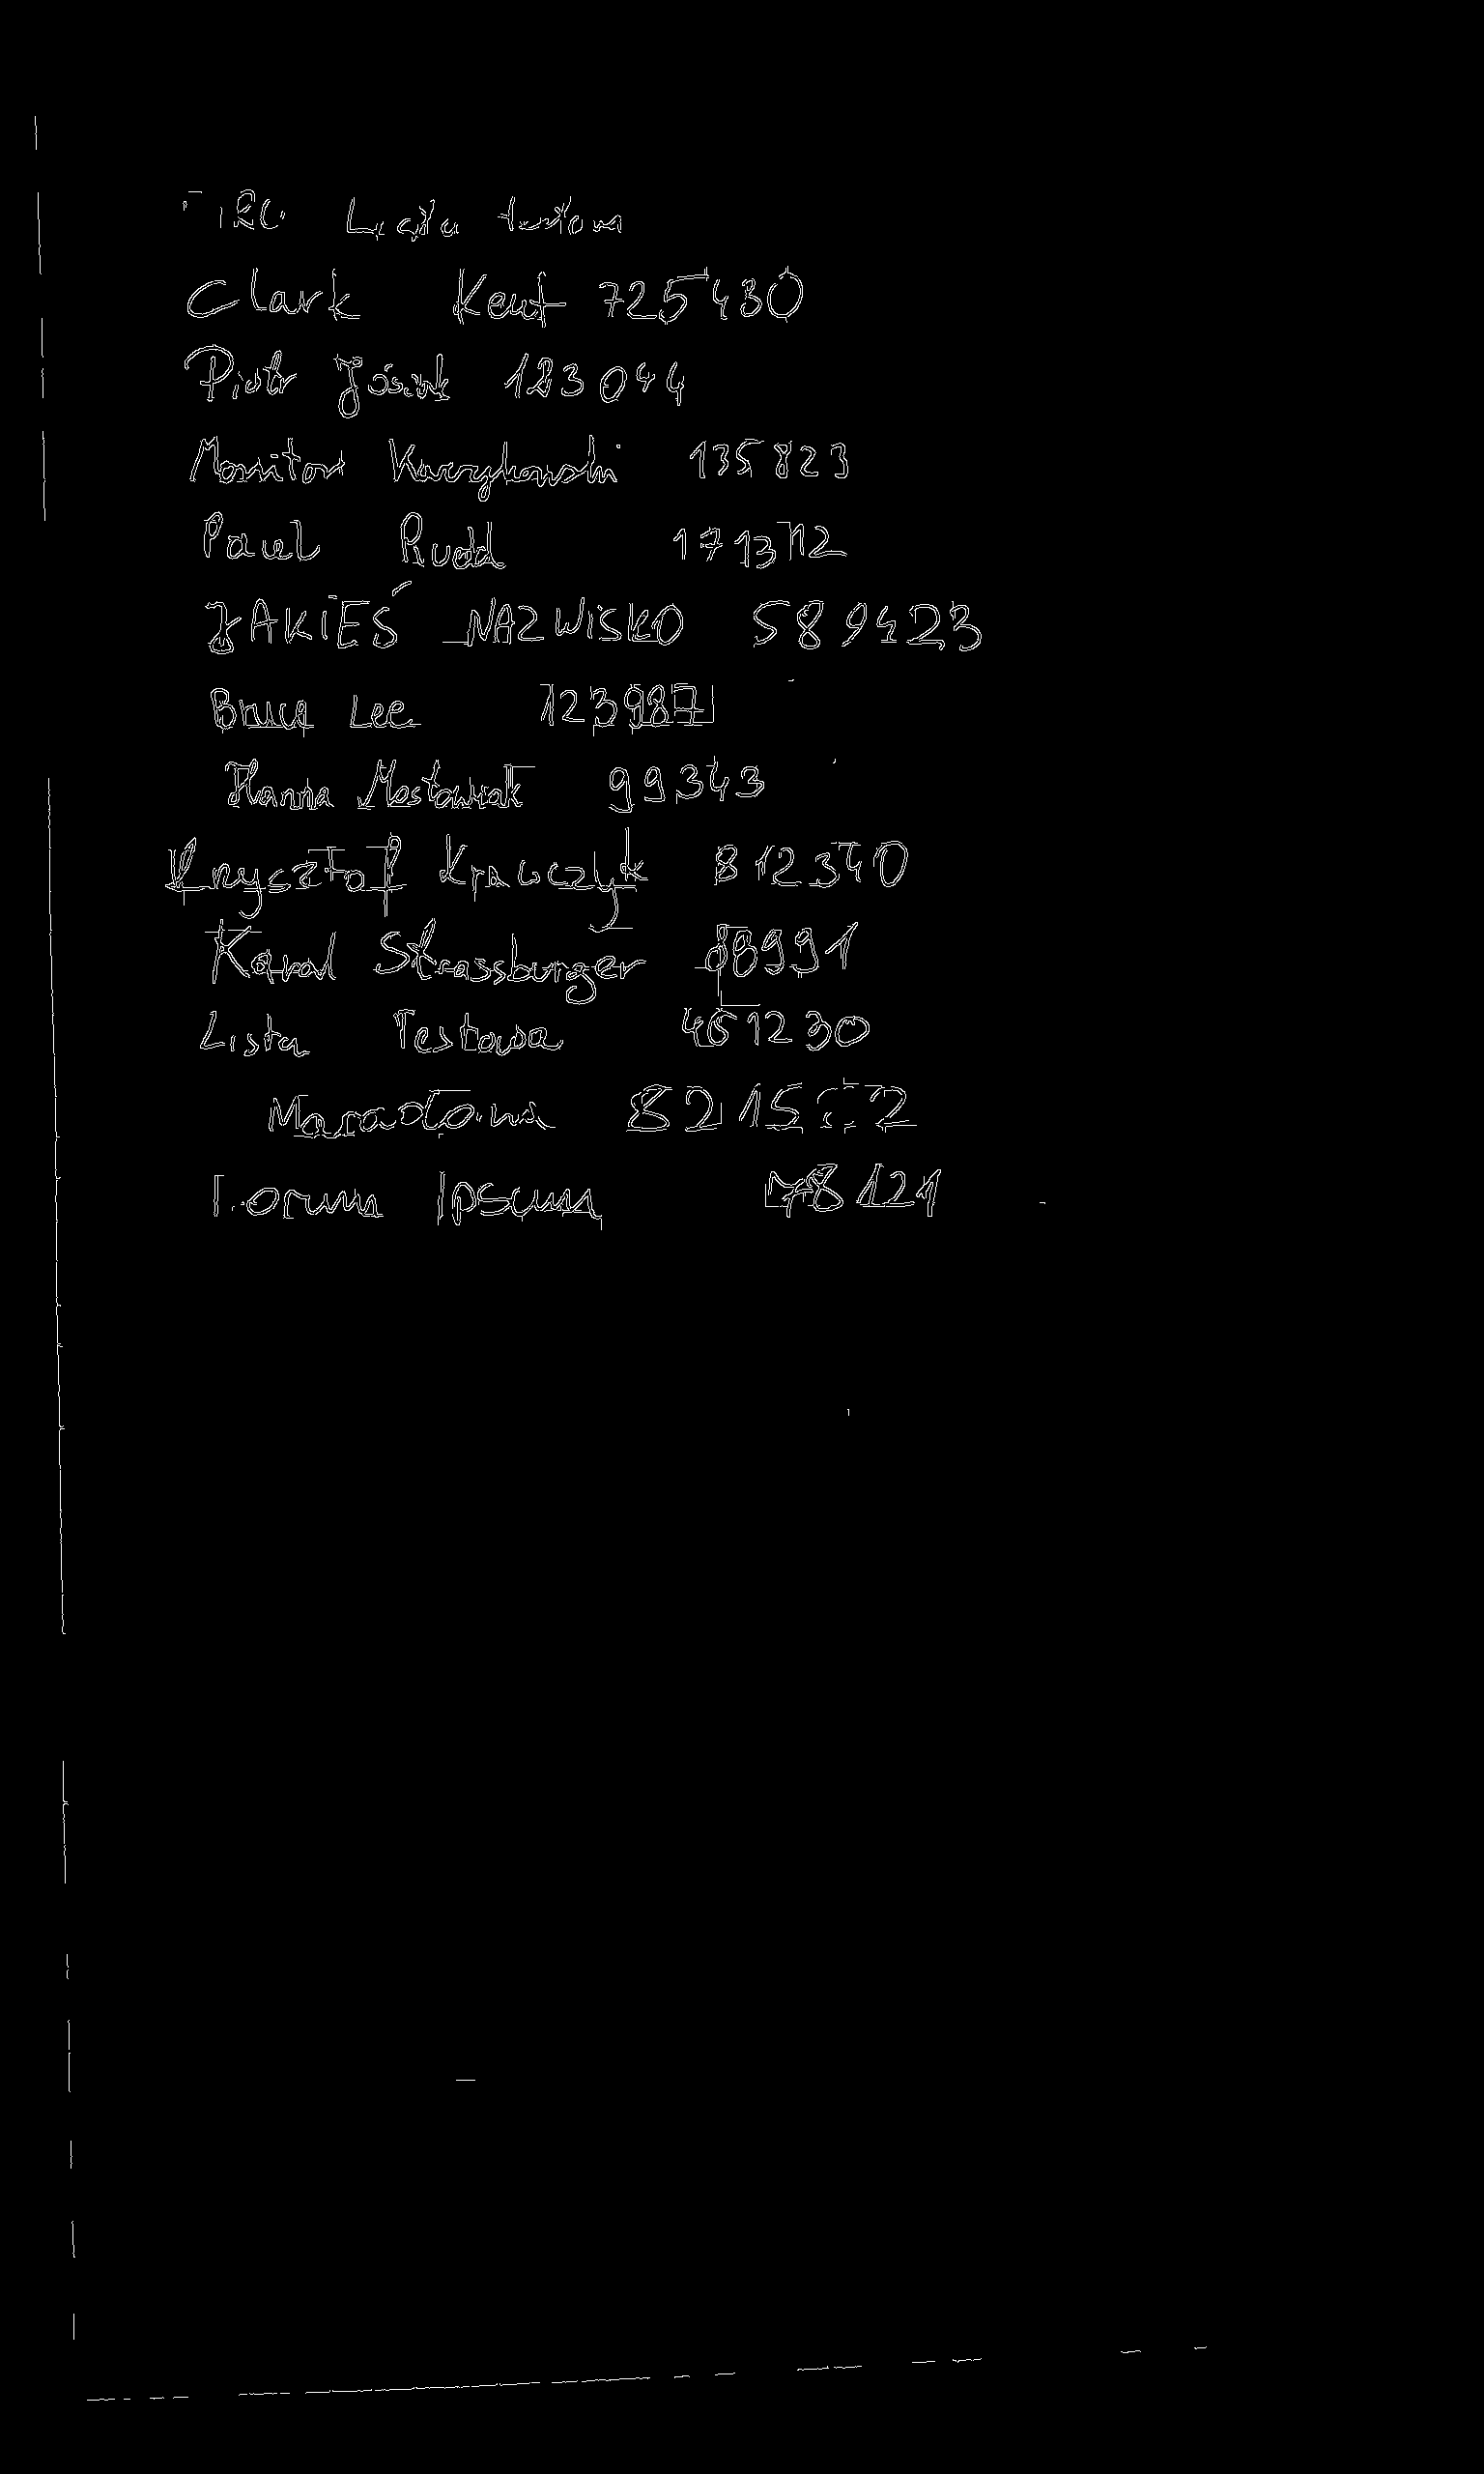 Lista testowa
Clark Kent 725430
Piotr Jósiak 123044
Monitor Kurzykowski 135823
Paul Rudd 171372
JAKIEŚ NAZWISKO 589423
Bruce Lee 123987
Hanna Mostowiak 99343
Krysztof Krawczyk 812340
Karol Strassburger 88991
Lista Testowa 451230
Maradona
Lorum Ipsum 78121